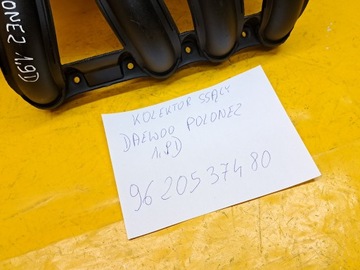 ONEZ 1.9D)
KOLEKTOR SSĄCY
DAEWOO POLONEZ
1.9D
96 20537480